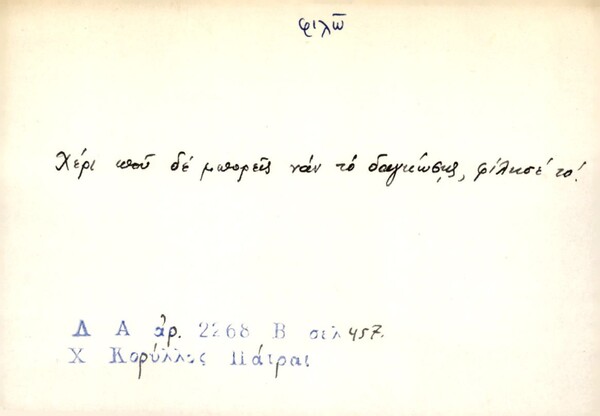 φιλῶ
Χέρι ποῦ δέ μπορεῖς νάν τό δαγκώσῃς, φίλησέ το!
Λ Α ἀρ. 2268 Β σελ 457.
Χ Κορύλλος Πάτραι